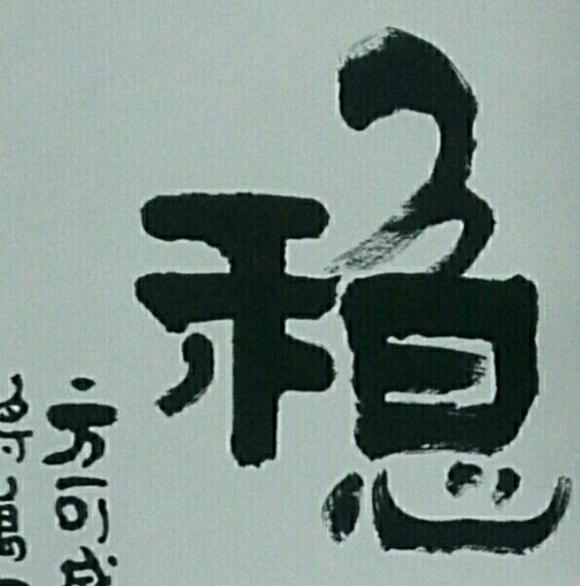 稳
方可成